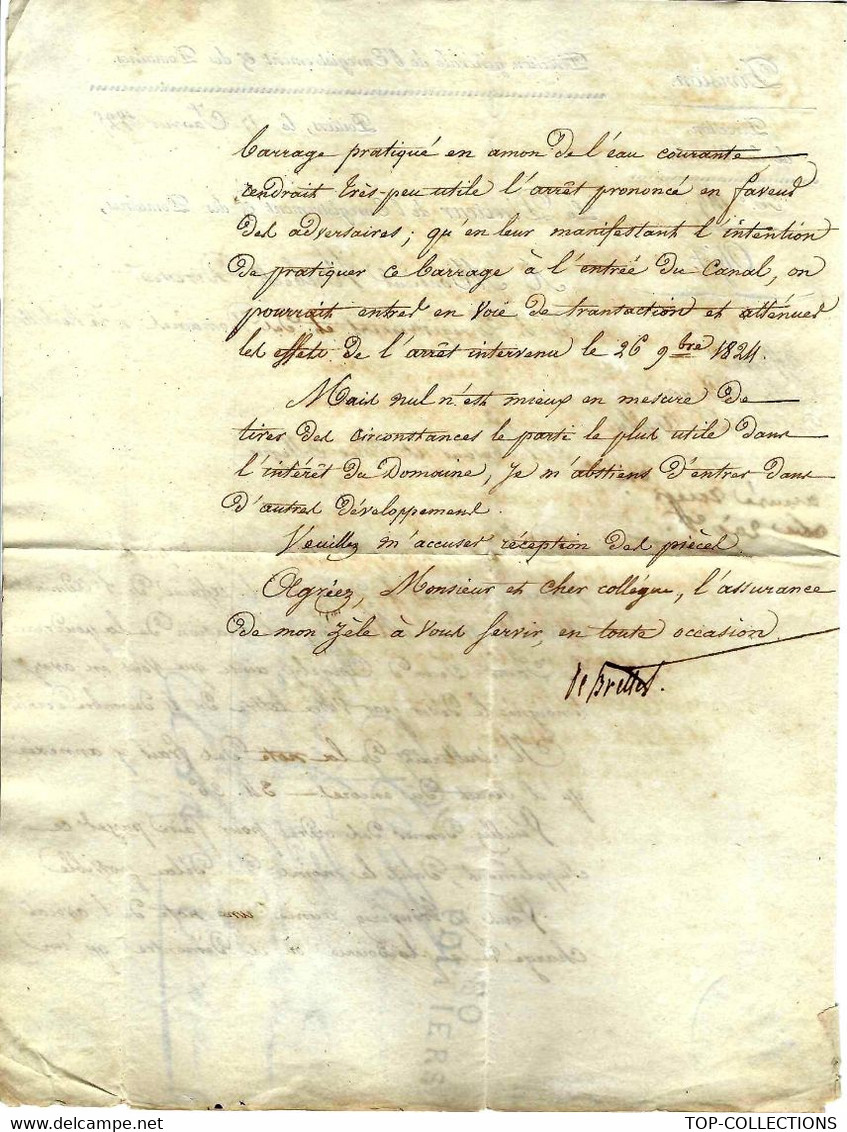 barrage pratiqué en amon de l'eau courante
rendrait très-peu utile l'arrêt prononcé en faveur
des adversaires; qu'en leur manifestant l'intention
de pratiquer ce barrage à l'entrée du canal, on
pourrait entrer en voie de transaction et atténuer
les effets de l'arrêt intervenu le 26 9bre 1824.
Mais nul n'est mieux en mesure de
tirer des circonstances le parti le plus utile dans
l'intérêt du Domaine, je m'abstiens d'entrer dans
d'autres développement.
Veuillez m'accuser réception des pièces.
Agréez, Monsieur et cher collégue, l'assurance
de mon zèle à vous servir, en toute occasion.
de Brettes.
TOP-COLLECTIONS